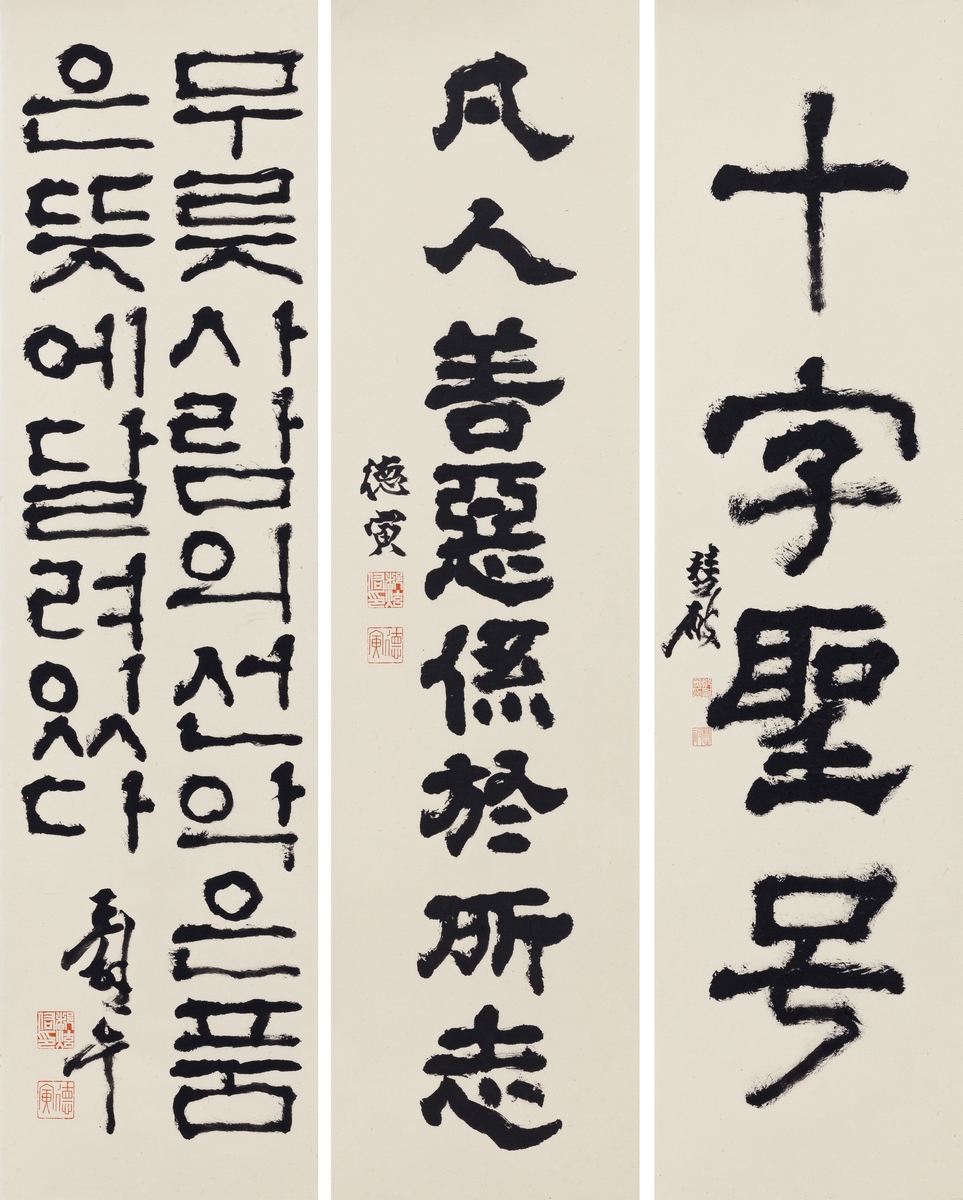 十字聖号
凡人善惡係於所志
德寅
무릇사람의선악은품
은뜻에달려있다